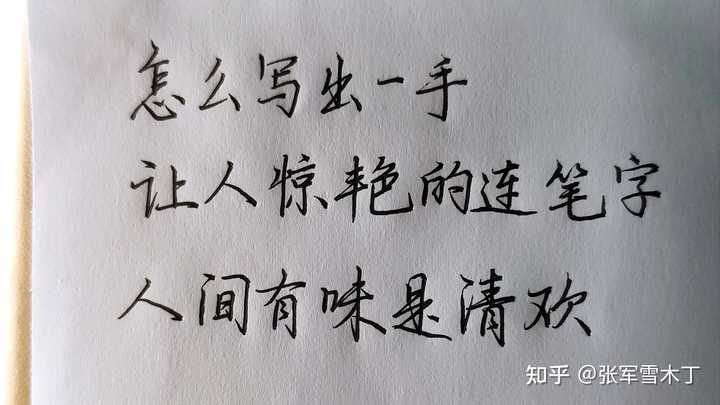 怎么写出一手
让人惊艳的连笔字
人间有味是清欢
知乎 @张军雪木丁